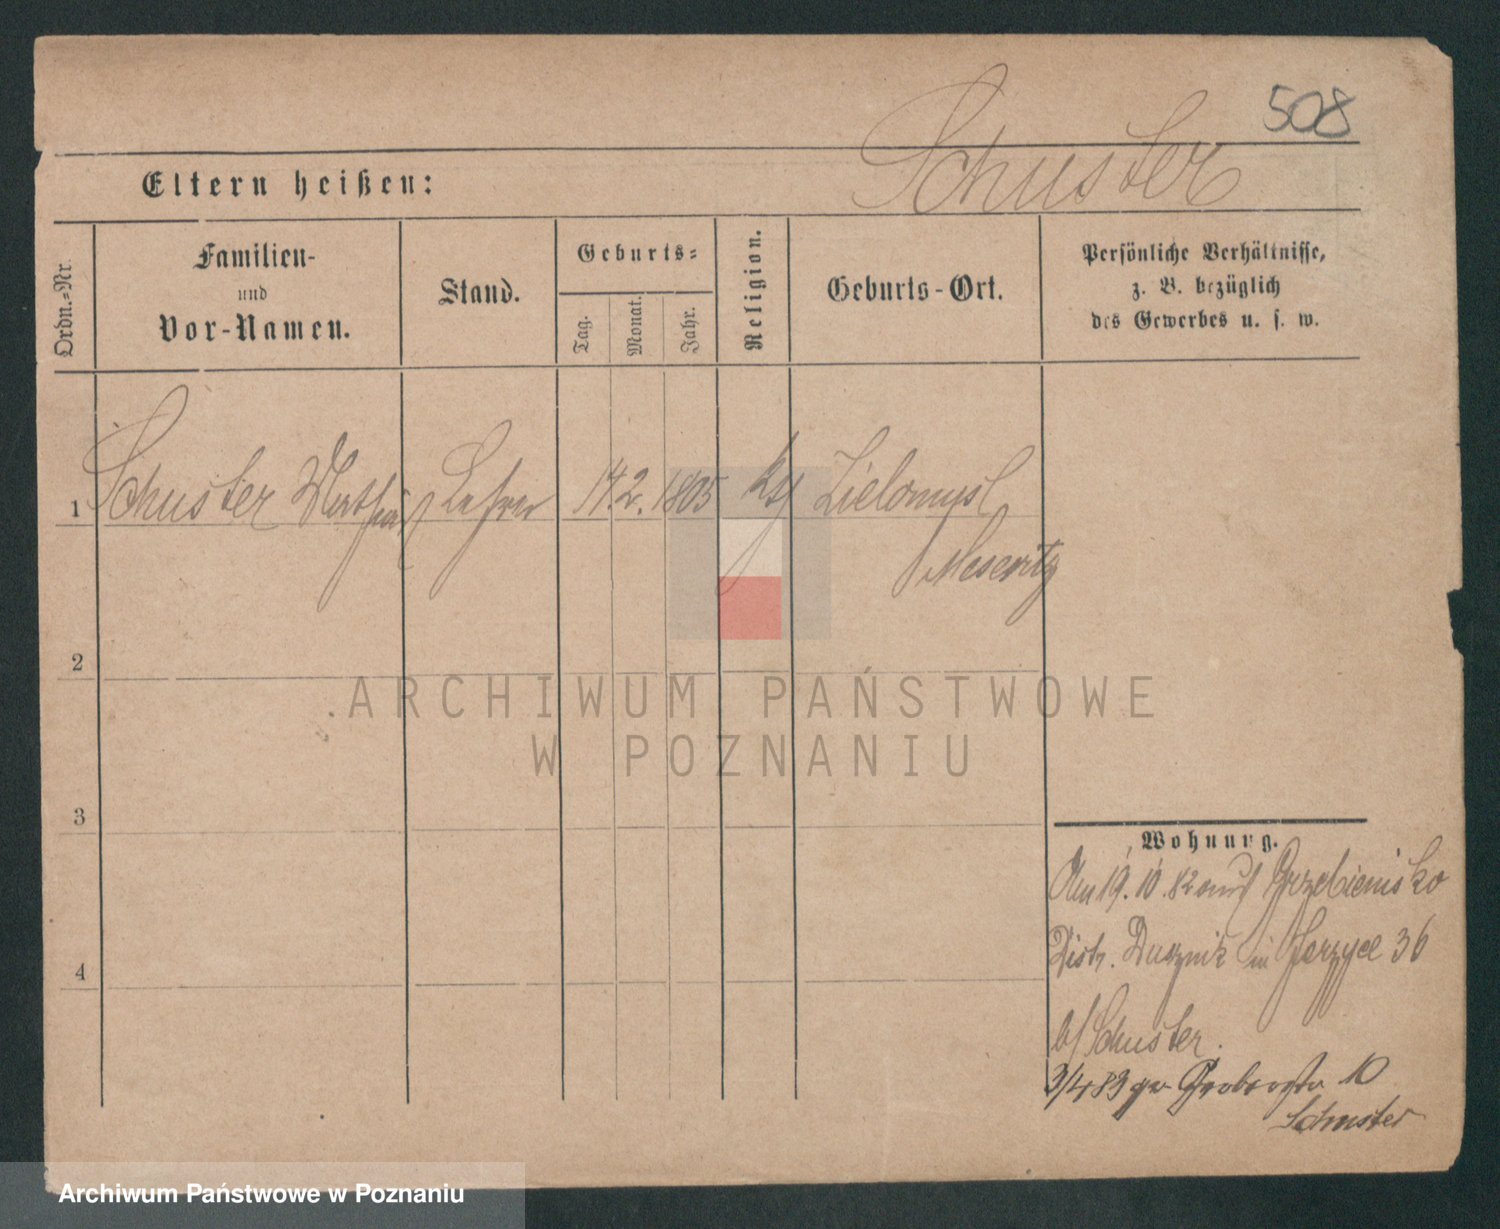 508
Schuster
Eltern heißen:
Ordn.-Nr.
Familien-
und
Vor-Namen.
Stand.
Geburts-
Tag.
Monat.
Jahr.
Religion.
Geburts-Ort.
Persönliche Verhältnisse,
z. B. bezüglich
des Gewerbes u. s. w.
1 Schuster Mathias Lehrer 14. 2. 1805 kth Lielomysl
Meseritz
2
3
4
ARCHIWUM PAŃSTWOWE
W POZNANIU
Wohnung.
Am 19. 10. 82 aus Grzebienisko
Distr. Duznik in Jerzyce 36
b/ Schuster.
3/4 83 Grabenstr 10
Schuster
Archiwum Państwowe w Poznaniu